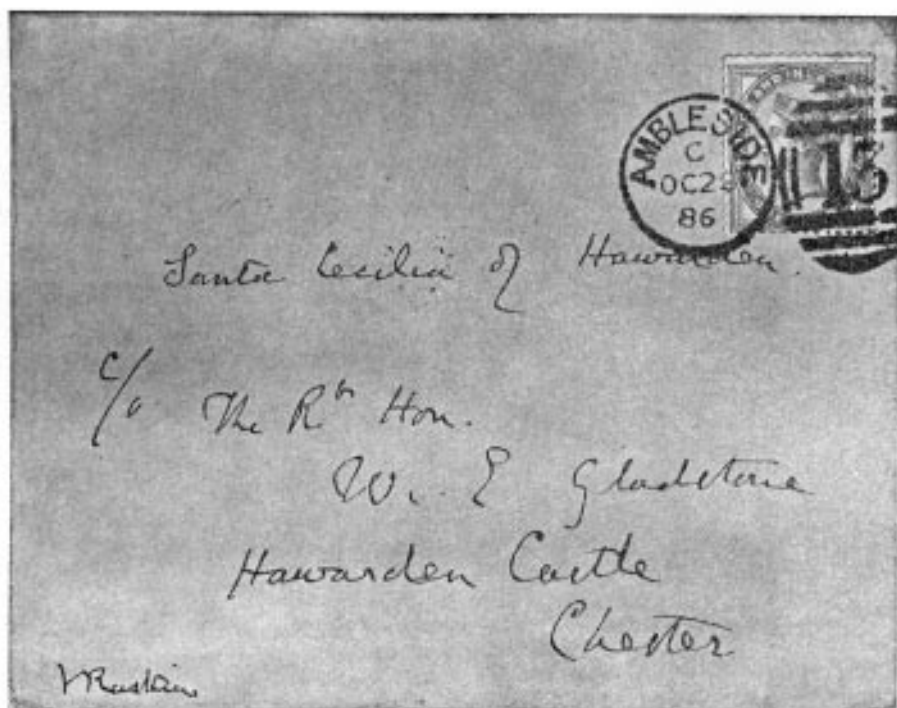 AMBLESIDE
C
OC2
86
13
Santa Cecilia of Hawarden.
c/o The Rt Hon.
W. E Gladstone
Hawarden Castle
Chester
JRuskin